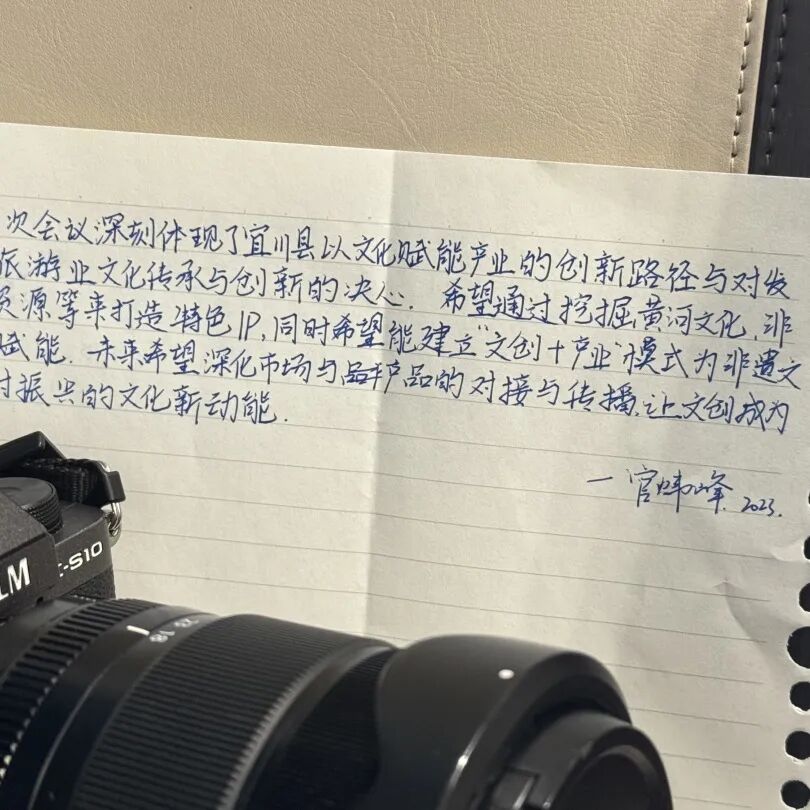 次会议深刻体现了宜川县以文化赋能产业的创新路径与对发
旅游业文化传承与创新的决心. 希望通过挖掘黄河文化,非
资源等来打造特色IP,同时希望能建立"文创+产业"模式为非遗文
赋能. 未来希望深化市场与品牌产品的对接与传播,让文创成为
村振兴的文化新动能.
一官炜峰. 2023.
-S10
LM
18 23